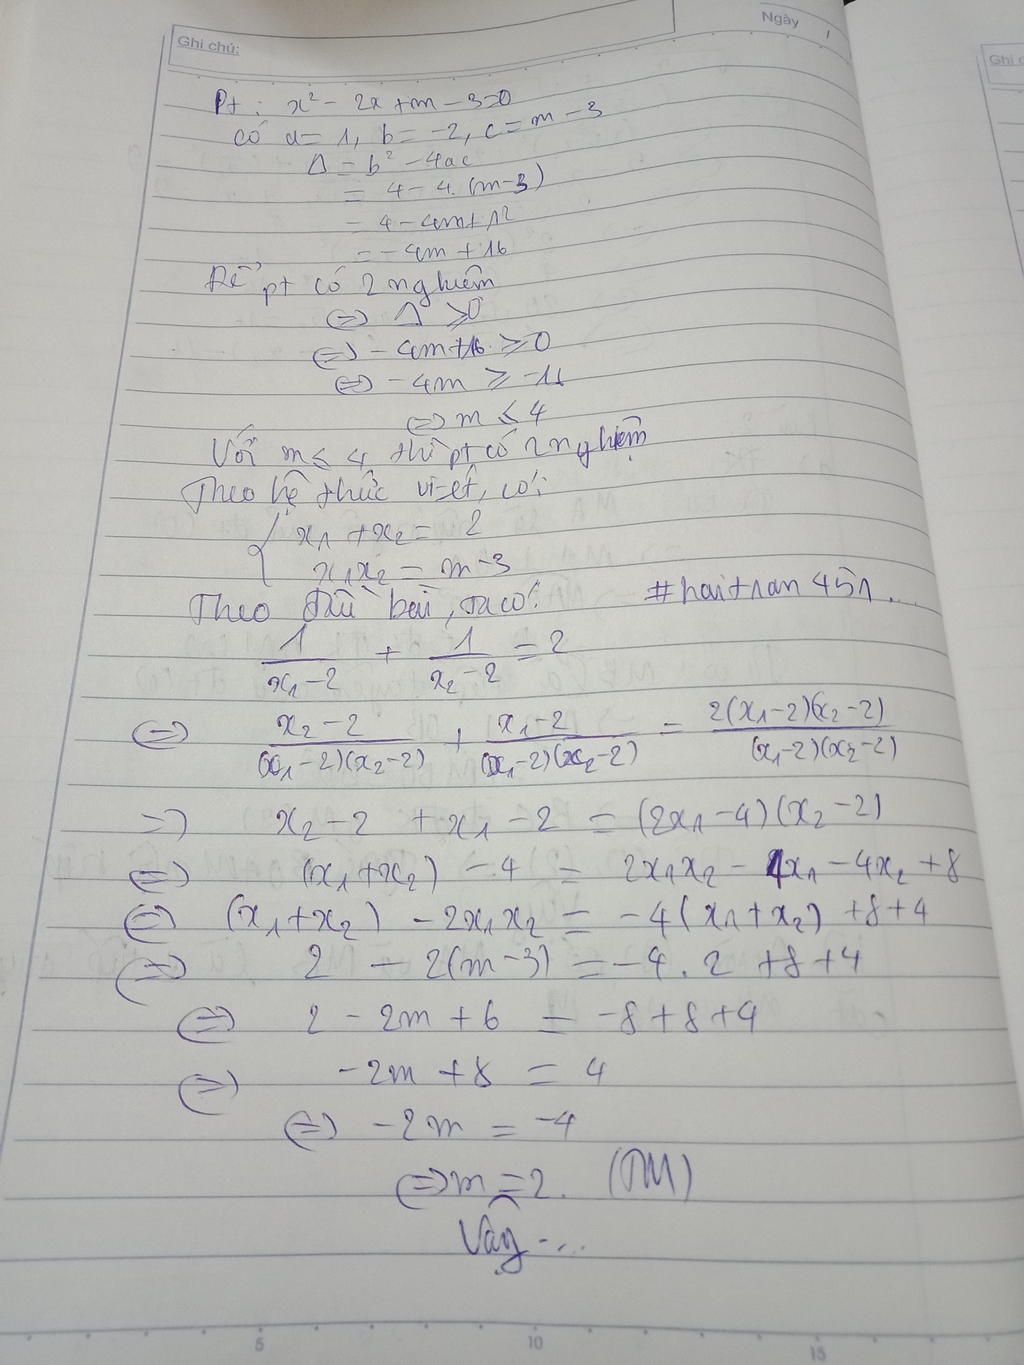 Ngày /
Ghi chú:
Ghi c
Pt : x² - 2x + m - 3 = 0
có a = 1, b = -2, c = m - 3
Δ = b² - 4ac
= 4 - 4.(m-3)
= 4 - 4m + 12
= -4m + 16
Để pt có 2 nghiệm
⇔ Δ ≥ 0
⇔ -4m + 16 ≥ 0
⇔ -4m ≥ -16
⇔ m ≤ 4
Với m ≤ 4 thì pt có 2 nghiệm
Theo hệ thức vi-ét, có:
{ x₁ + x₂ = 2
x₁x₂ = m - 3
Theo đầu bài, ta có: #haitran451...
1/(x₁-2) + 1/(x₂-2) = 2
⇔ (x₂-2)/((x₁-2)(x₂-2)) + (x₁-2)/((x₁-2)(x₂-2)) = 2(x₁-2)(x₂-2)/((x₁-2)(x₂-2))
⇒ x₂ - 2 + x₁ - 2 = (2x₁ - 4)(x₂ - 2)
⇔ (x₁ + x₂) - 4 = 2x₁x₂ - 4x₁ - 4x₂ + 8
⇔ (x₁ + x₂) - 2x₁x₂ = -4(x₁ + x₂) + 8 + 4
⇔ 2 - 2(m-3) = -4.2 + 8 + 4
⇔ 2 - 2m + 6 = -8 + 8 + 4
⇔ -2m + 8 = 4
⇔ -2m = -4
⇔ m = 2. (TM)
Vậy ...
5 10 15